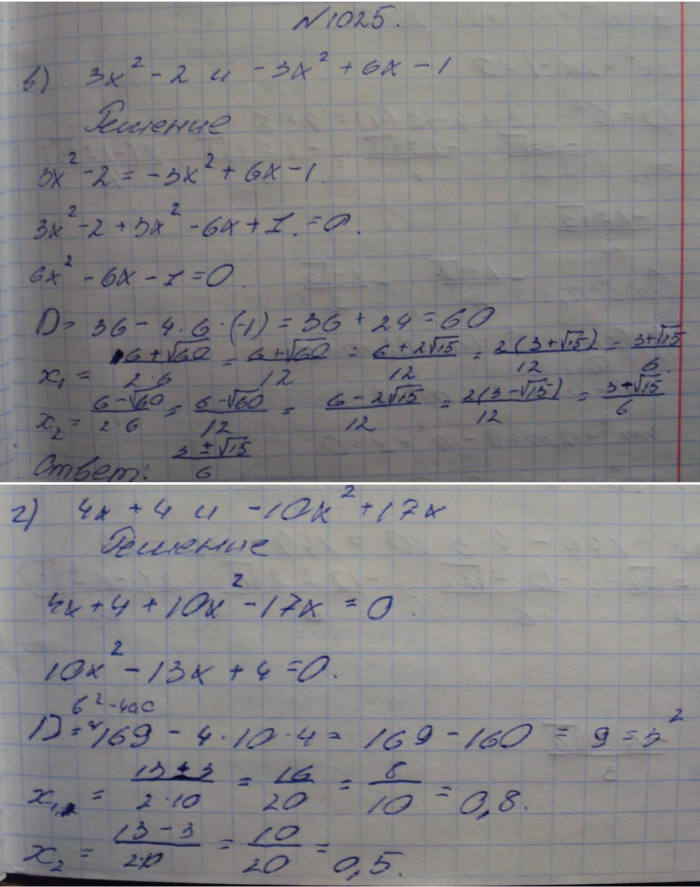 №1025.
в) 3x² - 2 и -3x² + 6x - 1
Решение
3x² - 2 = -3x² + 6x - 1.
3x² - 2 + 3x² - 6x + 1 = 0.
6x² - 6x - 1 = 0.
D = 36 - 4·6·(-1) = 36 + 24 = 60
x₁ = (6+√60)/(2·6) = (6+√60)/12 = (6+2√15)/12 = (2(3+√15))/12 = (3+√15)/6.
x₂ = (6-√60)/(2·6) = (6-√60)/12 = (6-2√15)/12 = (2(3-√15))/12 = (3+√15)/6
Ответ: (3±√15)/6
г) 4x + 4 и -10x² + 17x
Решение
4x + 4 + 10x² - 17x = 0.
10x² - 13x + 4 = 0.
b² - 4ac
D = 169 - 4·10·4 = 169 - 160 = 9 = 3²
x₁ = (13+3)/(2·10) = 16/20 = 8/10 = 0,8.
x₂ = (13-3)/(2·10) = 10/20 = 0,5.